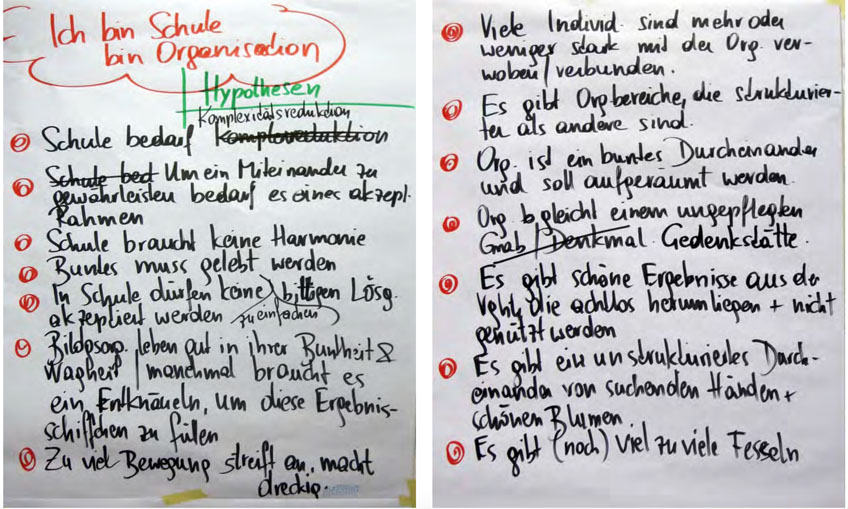 Ich bin Schule
bin Organisation
Hypothesen
Komplexitätsreduktion
Schule bedarf
Schule bed Um ein Miteinander zu
gewährleisten bedarf es eines akzept.
Rahmen
Schule braucht keine Harmonie
Buntes muss gelebt werden
In Schule dürfen keine billigen Lösg.
akzeptiert werden /zu einfachen/
Bildgsorg. leben gut in ihrer Buntheit &
Wagheit / manchmal braucht es
ein Entknäueln, um diese Ergebnis-
schiffchen zu füllen
Zu viel Bewegung streift an, macht
dreckig.
Viele Individ. sind mehr oder
weniger stark mit der Org. ver-
woben/verbunden.
Es gibt Orgbereiche, die strukturier-
ter als andere sind.
Org. ist ein buntes Durcheinander
und soll aufgeräumt werden.
Org b. gleicht einem ungepflegten
Grab / Denkmal Gedenkstätte.
Es gibt schöne Ergebnisse aus der
die achtlos herumliegen + nicht
genützt werden
Es gibt ein unstrukturiertes Durch-
einander von suchenden Händen +
schönen Blumen.
Es gibt (noch) viel zu viele Fesseln